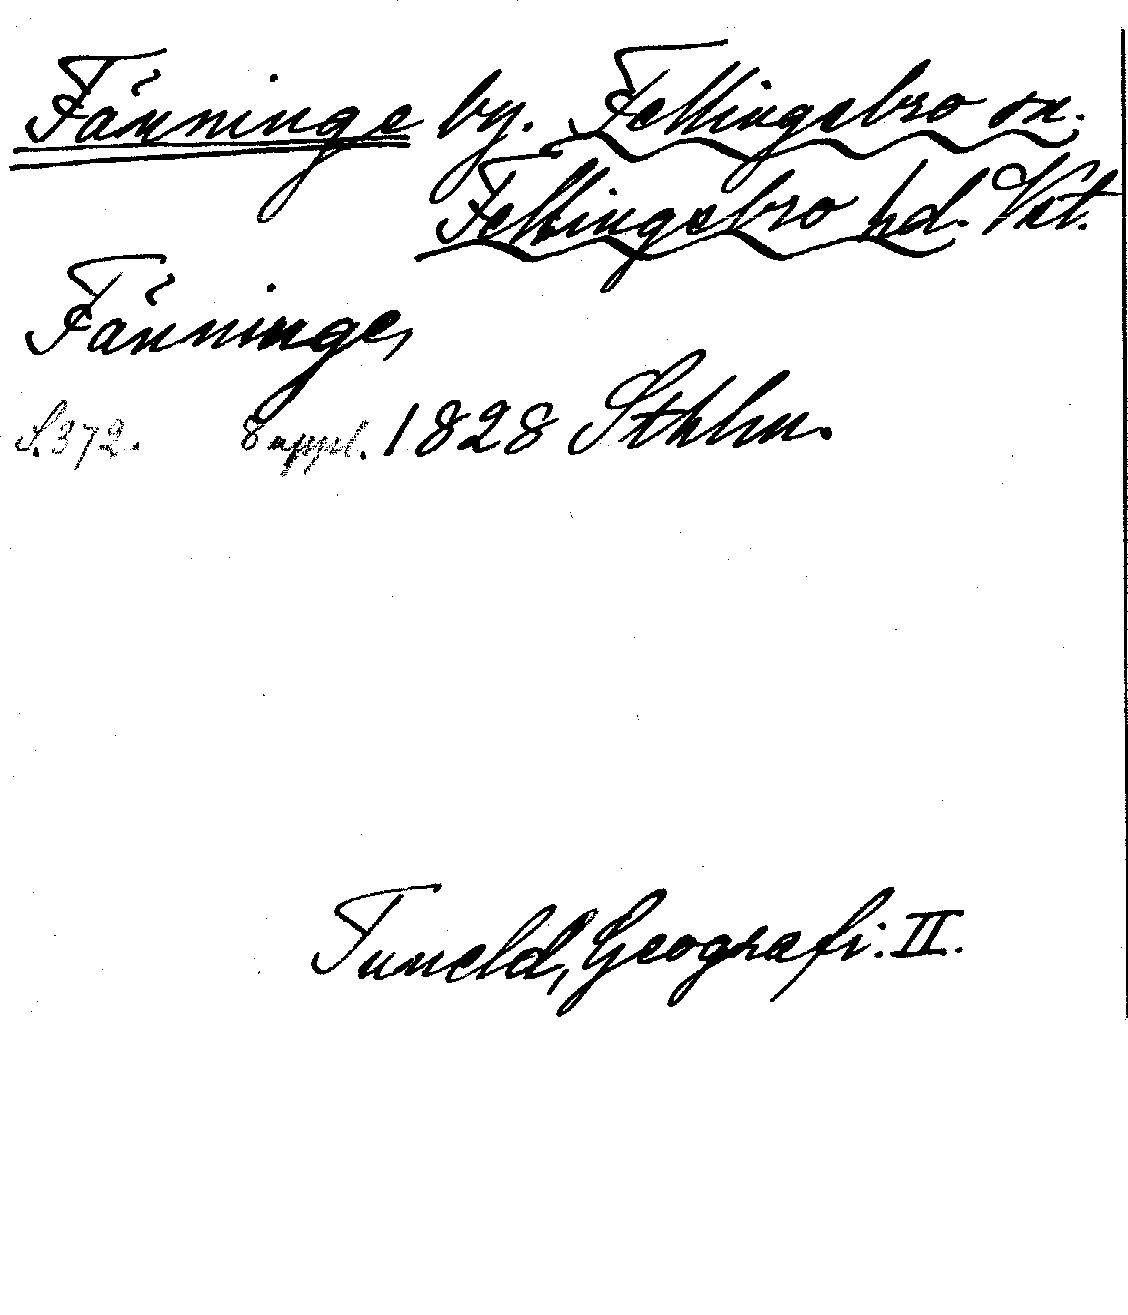 Fänninge by. Fellingsbro sn.
Fellingsbro hd. Vstl.
Fänninge,
S. 372. 8 uppl. 1828 Sthlm.
Tuneld, Geografi. II.